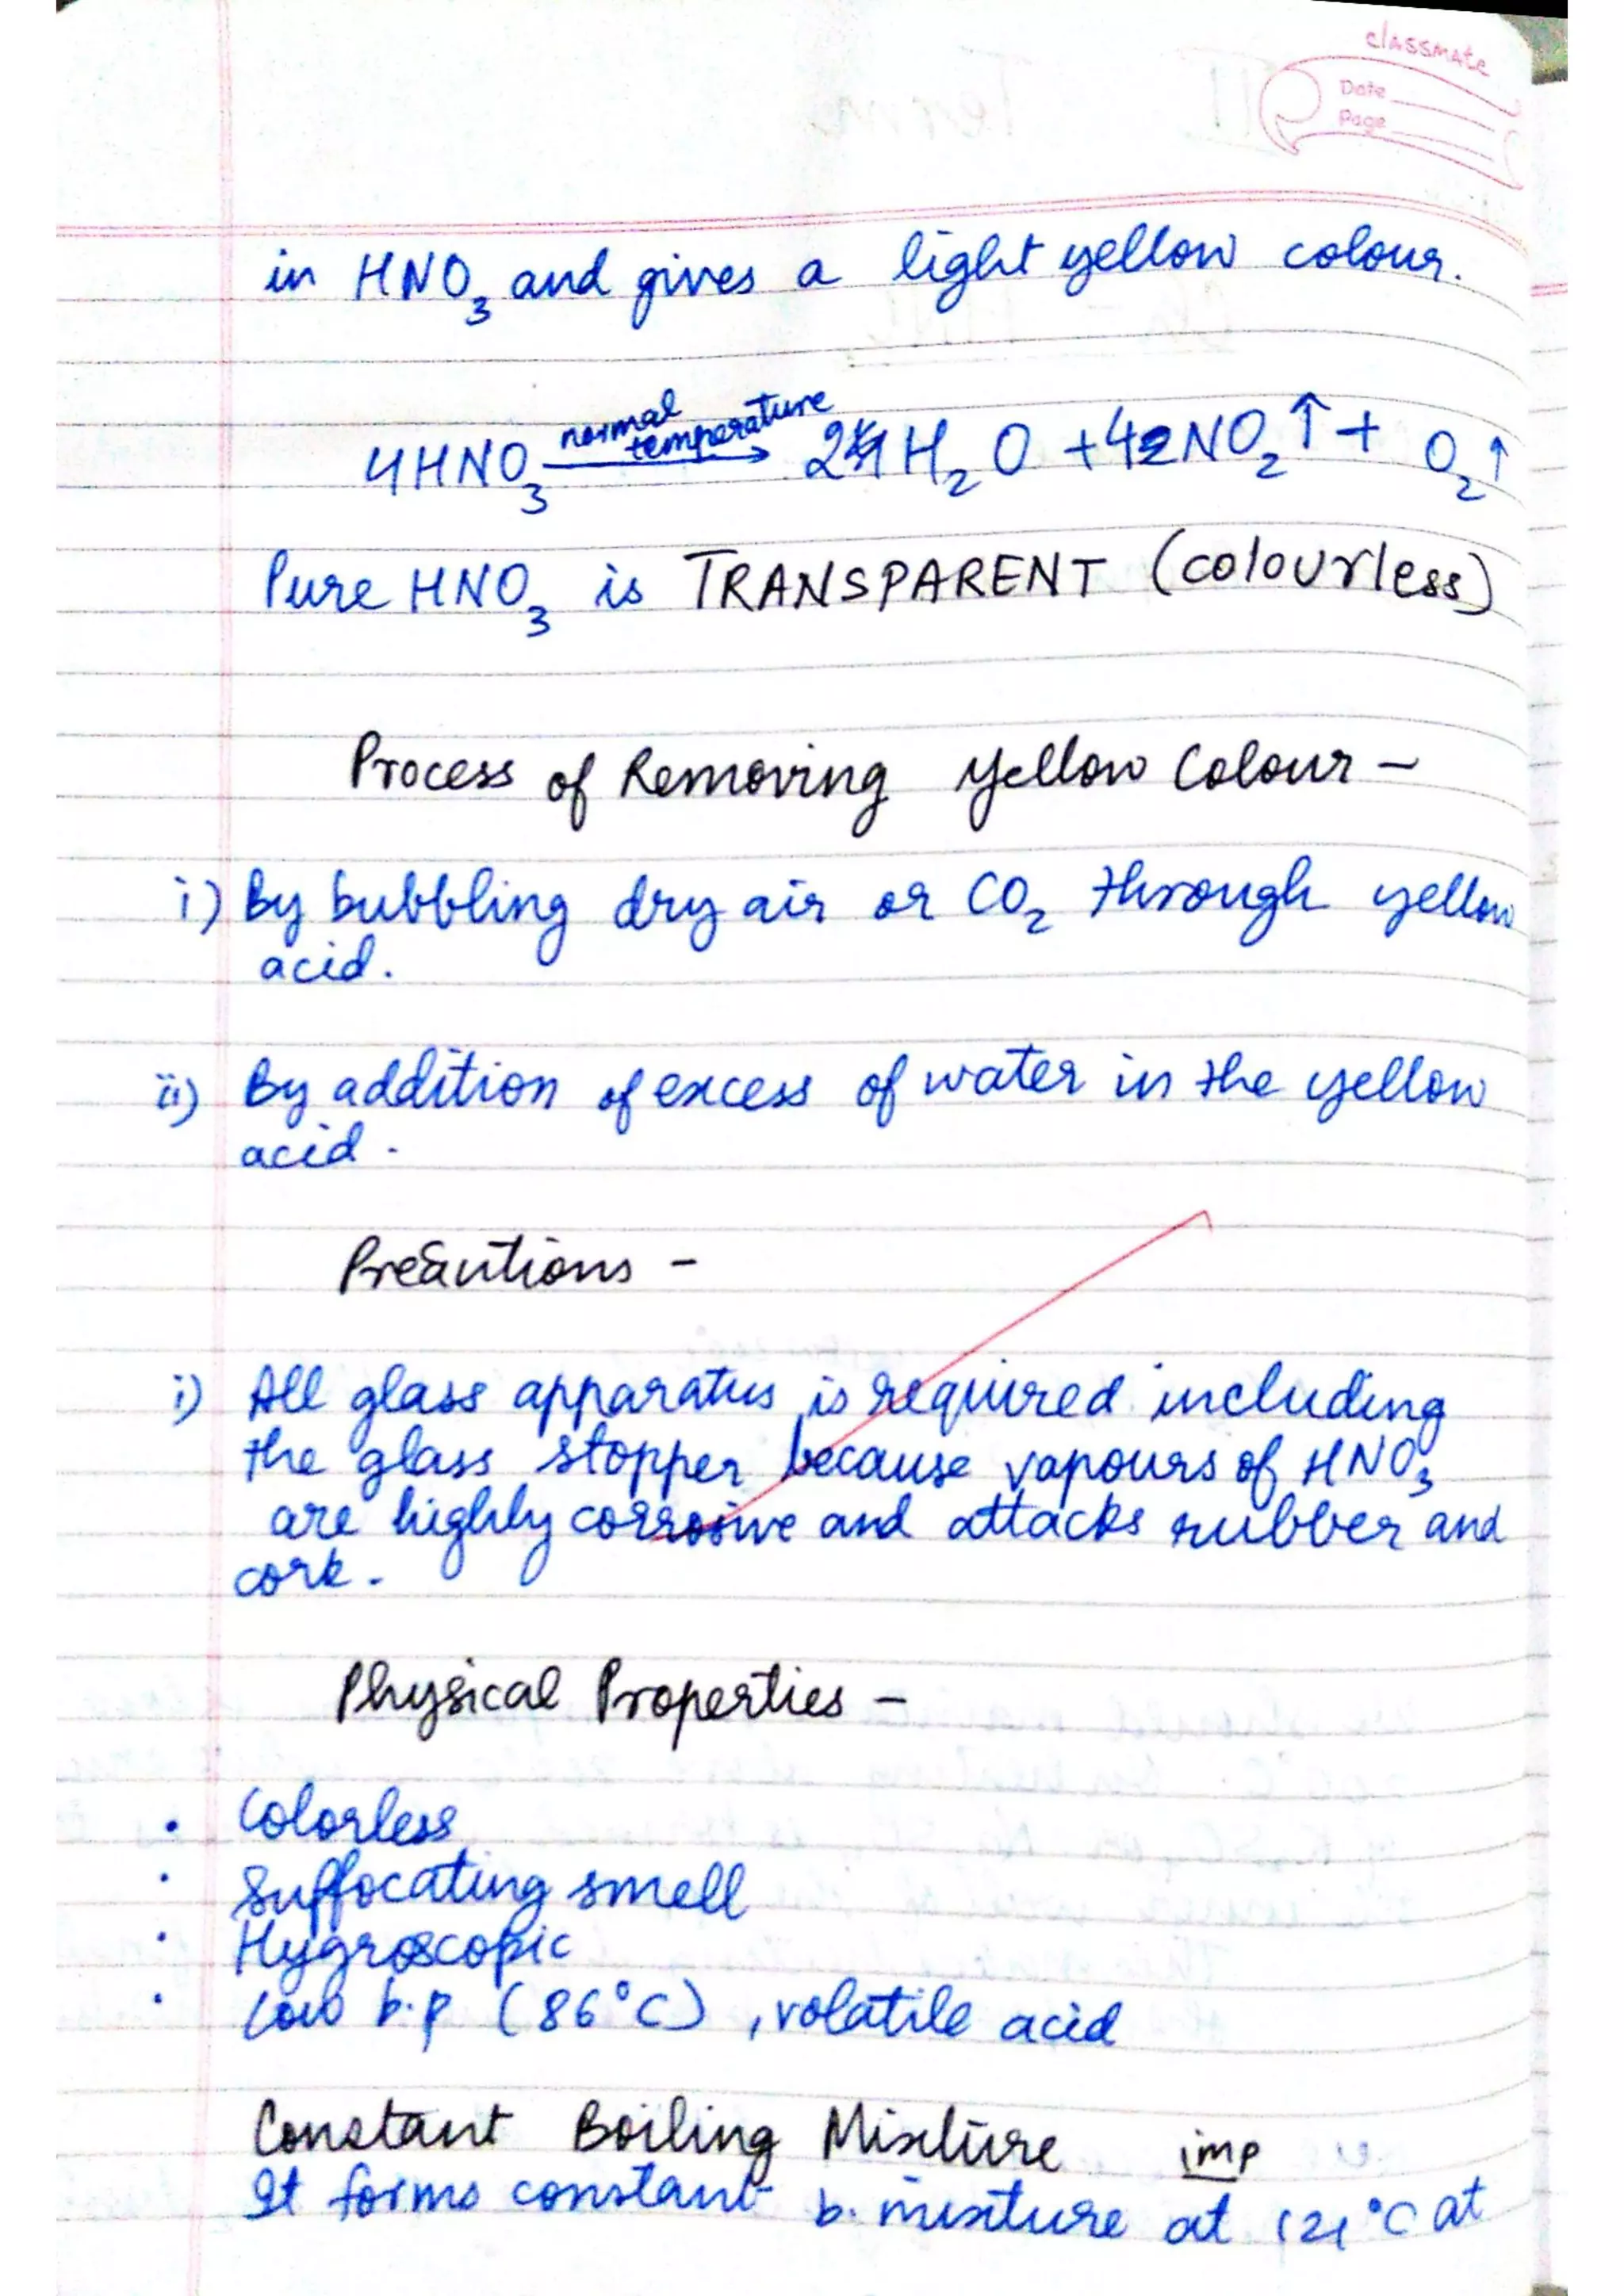 classmate
Date
Page
in HNO₃ and gives a light yellow colour.
4HNO₃ normal temperature → 2H₂O + 4NO₂↑ + O₂↑
Pure HNO₃ is TRANSPARENT (colourless)
Process of Removing Yellow Colour –
i) By bubbling dry air or CO₂ through yellow
acid.
ii) By addition of excess of water in the yellow
acid.
Precautions –
i) All glass apparatus is required including
the glass stopper because vapours of HNO₃
are highly corrosive and attacks rubber and
cork.
Physical Properties –
• Colorless
• Suffocating smell
• Hygroscopic
• Low b.p (86°C), volatile acid
Constant Boiling Mixture imp
It forms constant b. mixture at 121°C at